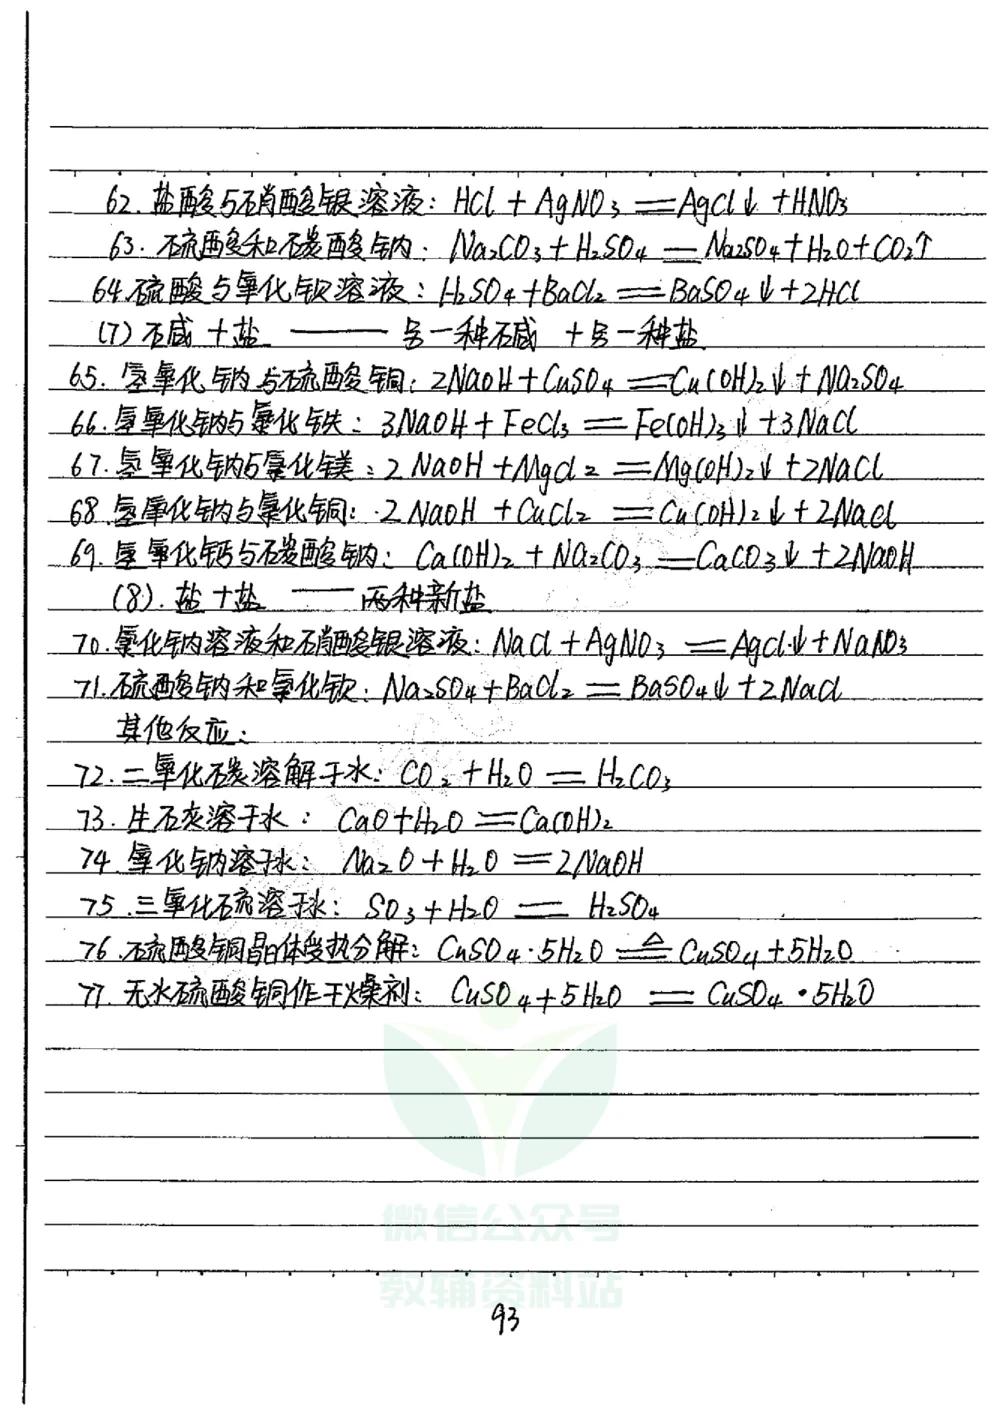 62. 盐酸与硝酸银溶液：HCl + AgNO₃ ══ AgCl↓ + HNO₃
63. 硫酸和碳酸钠：Na₂CO₃ + H₂SO₄ ══ Na₂SO₄ + H₂O + CO₂↑
64. 硫酸与氧化钡溶液：H₂SO₄ + BaCl₂ ══ BaSO₄↓ + 2HCl
(7) 碱 + 盐 —— 另一种碱 + 另一种盐
65. 氢氧化钠与硫酸铜：2NaOH + CuSO₄ ══ Cu(OH)₂↓ + Na₂SO₄
66. 氢氧化钠与氯化铁：3NaOH + FeCl₃ ══ Fe(OH)₃↓ + 3NaCl
67. 氢氧化钠与氯化镁：2NaOH + MgCl₂ ══ Mg(OH)₂↓ + 2NaCl
68. 氢氧化钠与氯化铜：2NaOH + CuCl₂ ══ Cu(OH)₂↓ + 2NaCl
69. 氢氧化钙与碳酸钠：Ca(OH)₂ + Na₂CO₃ ══ CaCO₃↓ + 2NaOH
(8). 盐 + 盐 —— 两种新盐
70. 氯化钠溶液和硝酸银溶液：NaCl + AgNO₃ ══ AgCl↓ + NaNO₃
71. 硫酸钠和氯化钡：Na₂SO₄ + BaCl₂ ══ BaSO₄↓ + 2NaCl
其他反应：
72. 二氧化碳溶解于水：CO₂ + H₂O ══ H₂CO₃
73. 生石灰溶于水：CaO + H₂O ══ Ca(OH)₂
74. 氧化钠溶于水：Na₂O + H₂O ══ 2NaOH
75. 三氧化硫溶于水：SO₃ + H₂O ══ H₂SO₄
76. 硫酸铜晶体受热分解：CuSO₄·5H₂O ≜ CuSO₄ + 5H₂O
77. 无水硫酸铜作干燥剂：CuSO₄ + 5H₂O ══ CuSO₄·5H₂O
微信公众号
教辅资料站
93